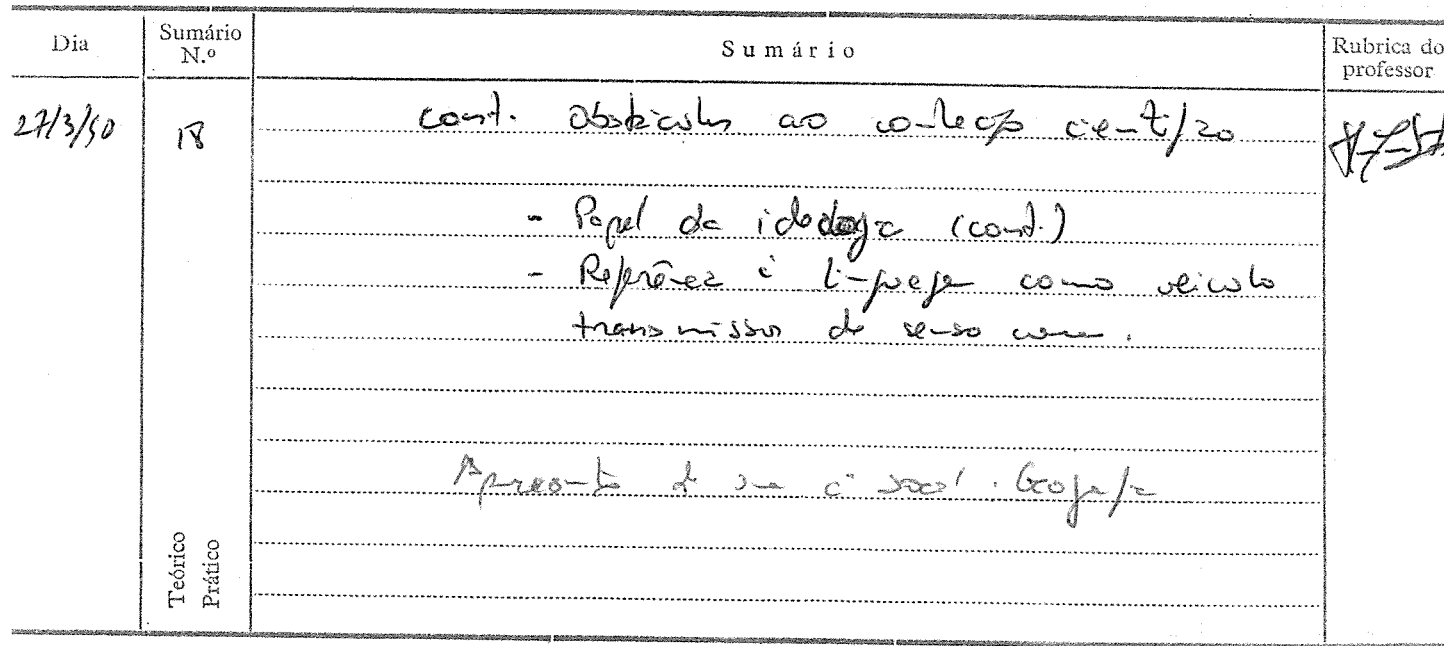 Dia
Sumário
N.º
Sumário
Rubrica do
professor
27/3/90
18
cont. obstáculos ao conhecº científico
- Papel da ideologia (cont.)
- Referência à linguagem como veículo
transmissor do senso comum.
Apresentação de uma ciª social: Geografia
Teórico
Prático